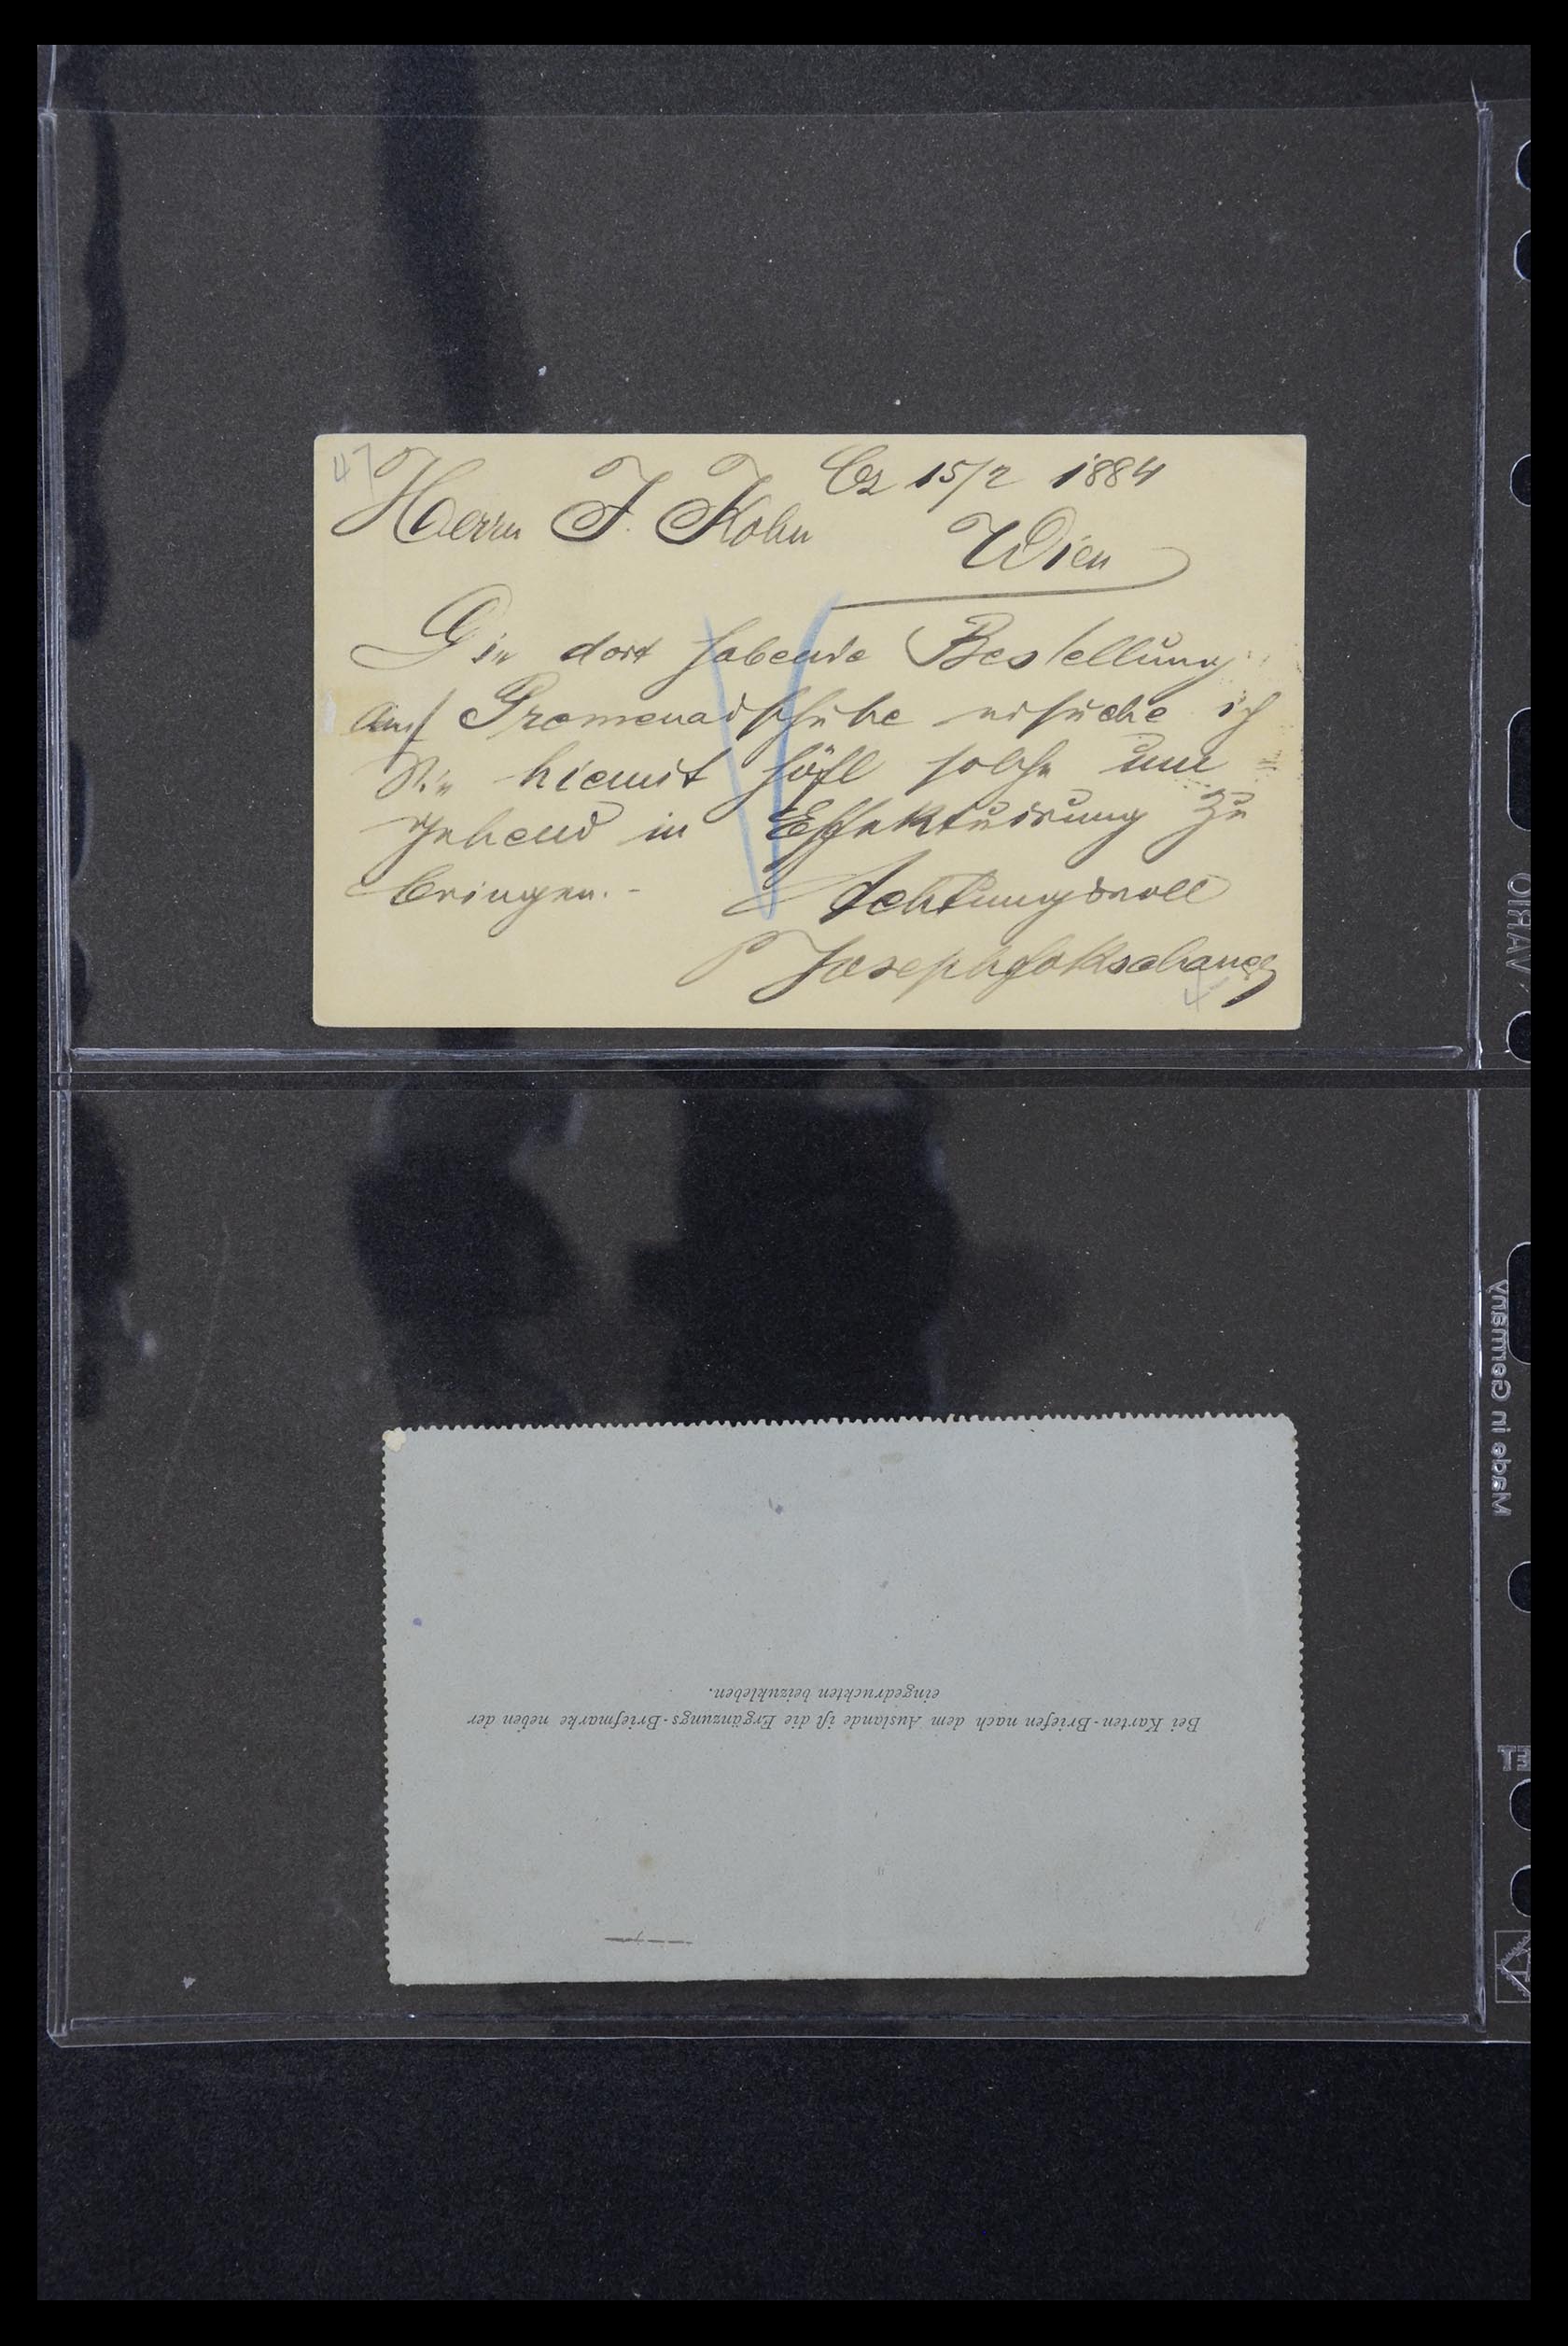 Cz 15/2 1884
Herrn J. Kohn
Wien
Die dort habende Bestellung
auf Promenadschuhe ersuche ich
Sie hiemit höfl solche um=
gehend in Effektuirung zu
bringen.-
Achtungsvoll
Joseph
Bei Karten-Briefen nach dem Auslande iſt die Ergänzungs-Briefmarke neben der
eingedruckten beizukleben.
VARIO
Made in Germany